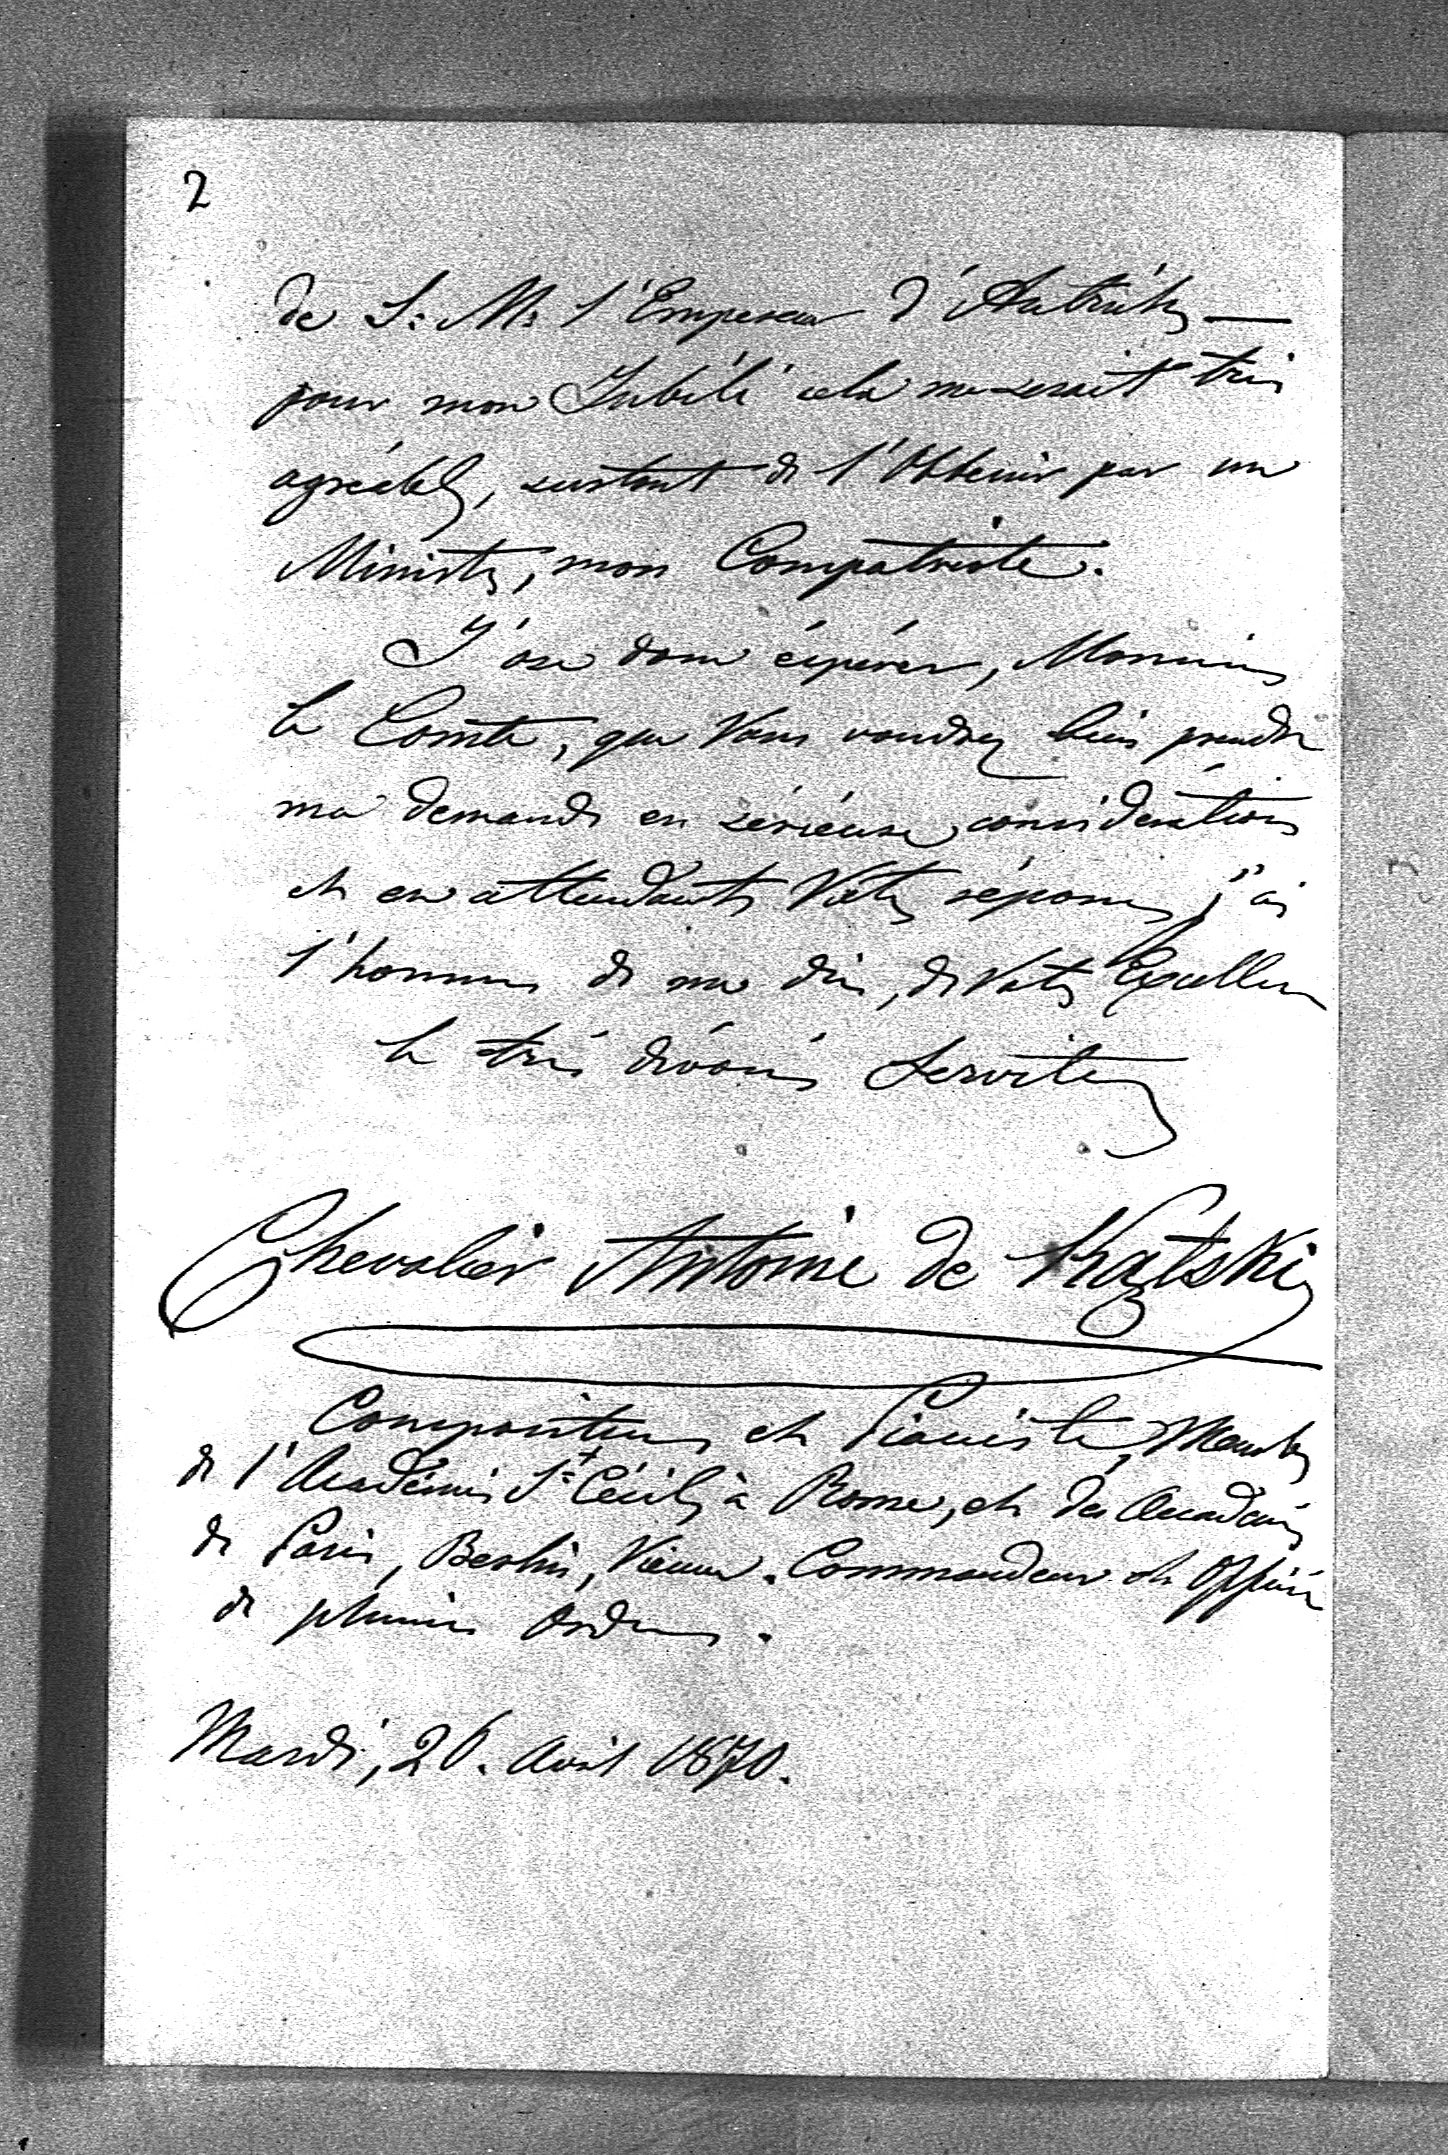 2
de S: M: l'Empereur d'Autriche —
pour mon Jubilé cela me serait très
agréable, surtout de l'obtenir par un
Ministre, mon Compatriote.
J'ose donc éspérer, Monsieur
le Comte, que Vous voudrez bien prendre
ma demande en sérieuse considération
et en attendant Votre réponse j'ai
l'honneur de me dire, de Votre Excellence
le très dévoué Serviteur
Chevalier Antoine de Kątski
Compositeur et Pianiste, Membre
de l'Académie St Cécile à Rome, et des Académies
de Paris, Berlin, Vienne. Commandeur et Officier
de plusieurs Ordres.
Mardi, 26. Avril 1870.